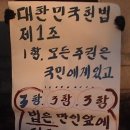 대한민국헌법
제1조
1항. 모든주권은
국민에게있고
3항, 3항, 3항
법은 만인앞에